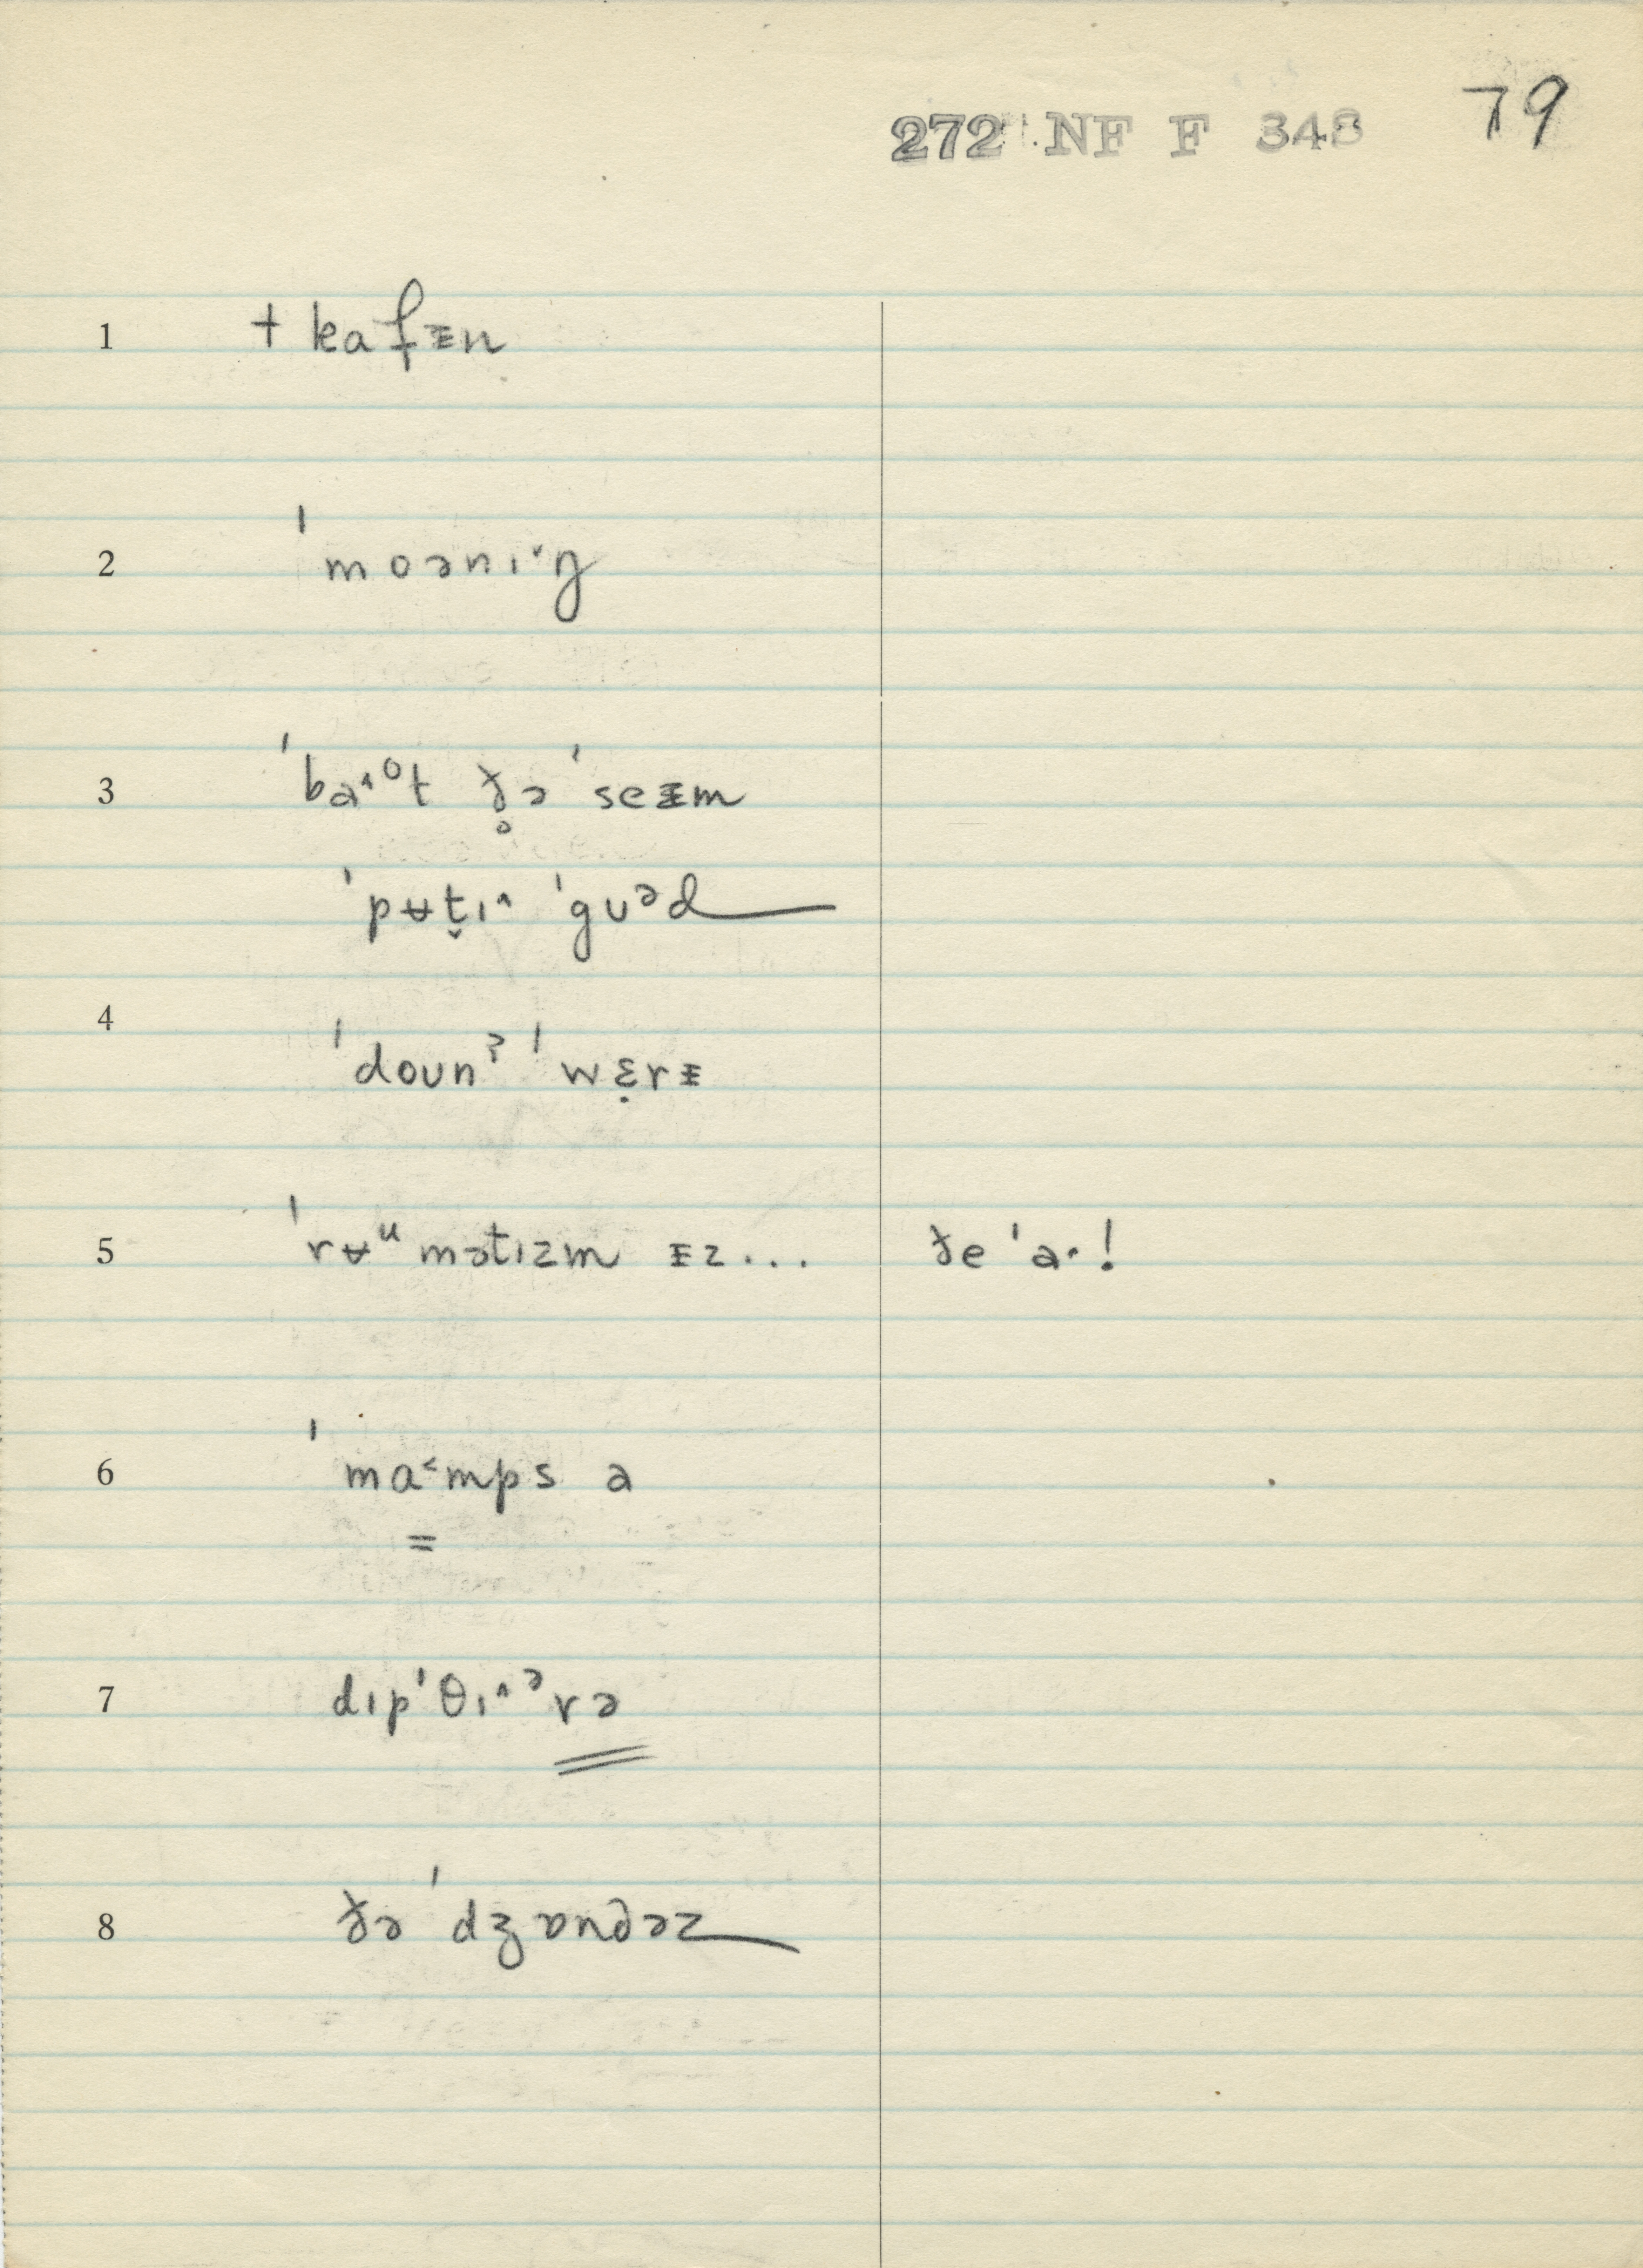 272 NF F 348 79
1 + kafᵻn
2 ˈmoənɪ˅ŋ
3 ˈba˄ᵒt ð̥ə ˈseᵻm
ˈpʉt̬ɪ˄ ˈgʊᵊd
4 ˈdoʊnˀ ˈwɛ̣rᵻ
5 ˈrʉᵘmətɪzm ᵻz... ðe ˈa·!
6 ˈmɑ˂mps a
=
7 dɪpˈθɪ˄ᵊrə
8 ðə ˈdʒɒndəz